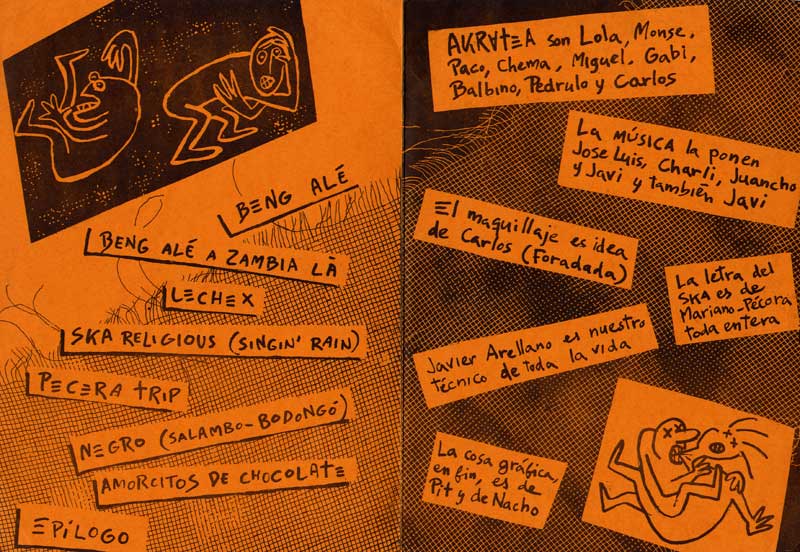 BENG ALÉ
BENG ALÉ A ZAMBIA LÀ
LECHEX
SKA RELIGIOUS (SINGIN' RAIN)
PECERA TRIP
NEGRO (SALAMBO-BODONGÓ)
AMORCITOS DE CHOCOLATE
EPÍLOGO
AKRATEA son Lola, Monse,
Paco, Chema, Miguel, Gabi,
Balbino, Pedrulo y Carlos
La MÚSICA la ponen
Jose Luis, Charli, Juancho
y Javi y también Javi
El maquillaje es idea
de Carlos (Foradada)
La letra del
SKA es de
Mariano-Pécora
toda entera
Javier Arellano es nuestro
técnico de toda la vida
La cosa gráfica,
en fin, es de
Pit y de Nacho